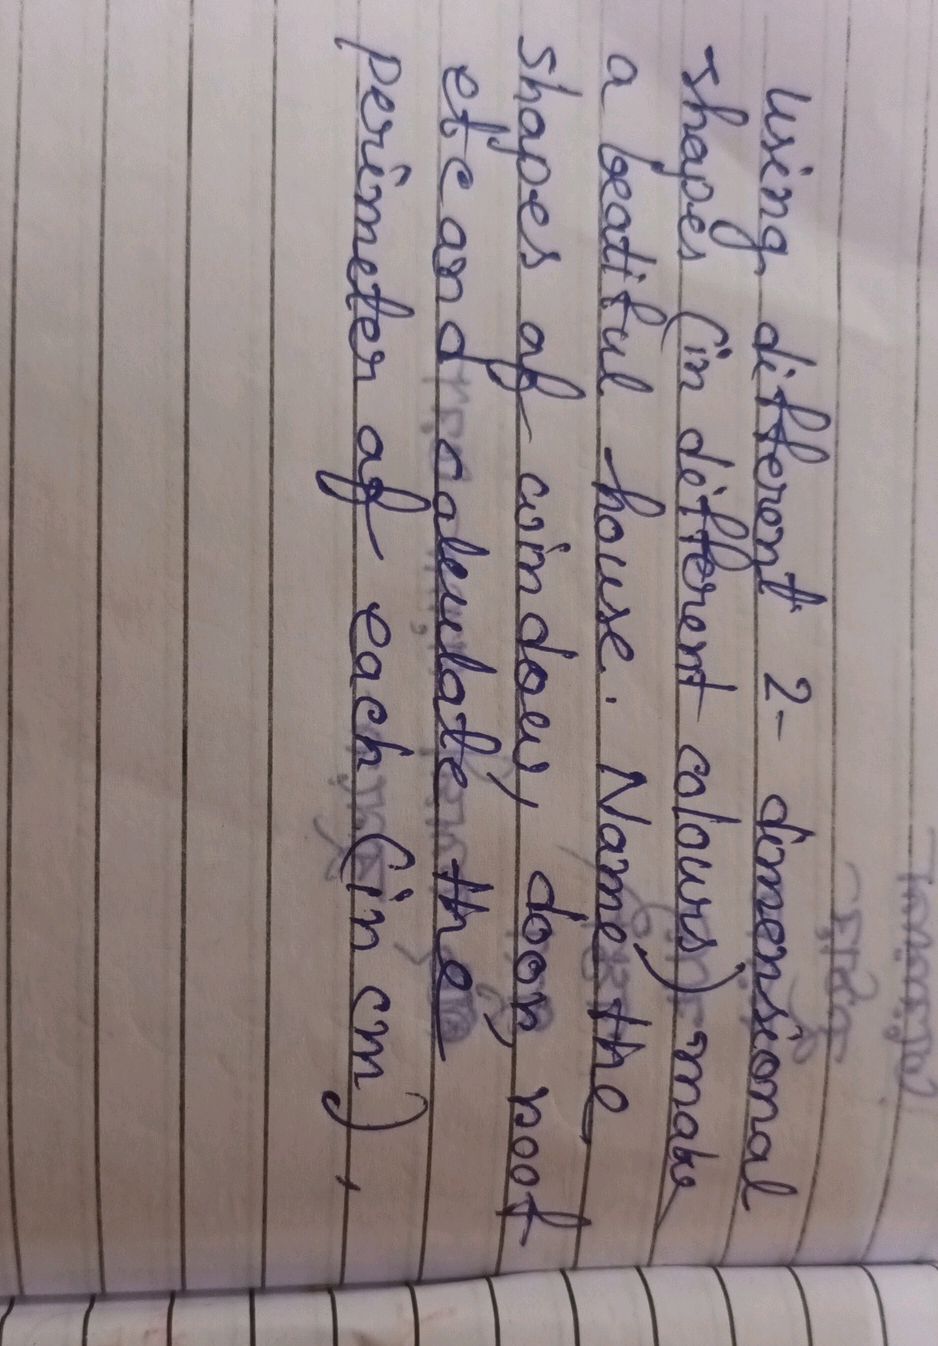 Using different 2- dimensional
shapes (in different colours) make
a beatiful house. Name the
shapes of window, door, roof
etc and calculate the
perimeter of each (in cm),